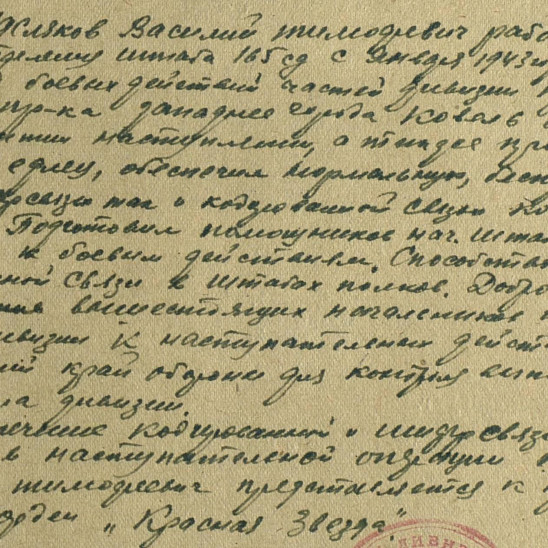 асляков Василий Тимофеевич раб
штаба 165 сд с января 1943
боевых действий частей дивизии
пр-ка западнее города Ковель
наступлении, а также
обеспечил нормальную,
так и кодированной связью
Подготовил помощников нач. штаб
к боевым действиям. Способств
ной связи в штабах полков. Добро
вышестоящих начальников
дивизии к наступательным дейст
край обороны для контроля вып
дивизии.
печение кодированной и шифрсвяз
в наступательной операции
Тимофеевич представляется к
орден „Красная Звезда".
ДИВИ